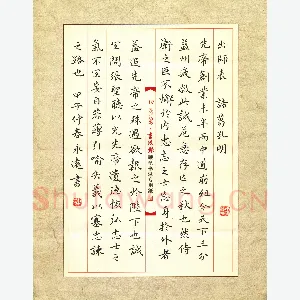 出師表 諸葛孔明
先帝創業未半而中道崩殂今天下三分
益州疲敝此誠危急存亡之秋也然侍
衛之臣不懈於內忠志之士忘身於外者
蓋追先帝之殊遇欲報之於陛下也誠
宜開張聖聽以光先帝遺德恢弘志士之
氣不宜妄自菲薄引喻失義以塞忠諫
之路也 甲午仲春永遠書